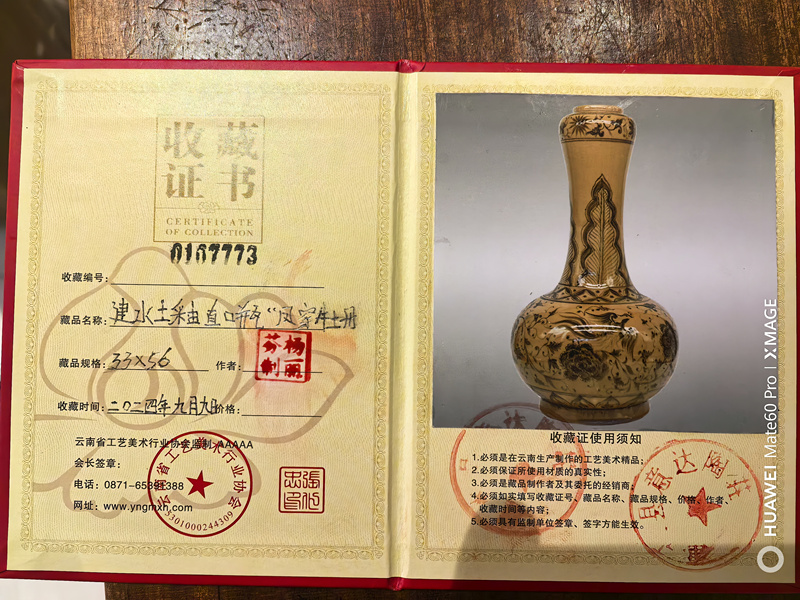 收藏
证书
CERTIFICATE
OF COLLECTION
0167773
收藏编号:
藏品名称: 建水土釉直口瓶“凤穿牡丹
藏品规格: 33×56 作者:
杨丽芬制
收藏时间: 二〇二四年九月九日 价格:
云南省工艺美术行业协会监制 AAAAA
会长签章:
电话: 0871-65
388
网址: www.yngmxh.com
云南省工艺美术行业协会
5301000244309
收藏证使用须知
1.必须是在云南生产制作的工艺美术精品;
2.必须保证所使用材质的真实性;
3.必须是藏品制作者及其委托的经销商;
4.必须如实填写收藏证号、藏品名称、藏品规格、价格、作者、
收藏时间等内容;
5.必须具有监制单位签章、签字方能生效。
HUAWEI Mate60 Pro | XMAGE